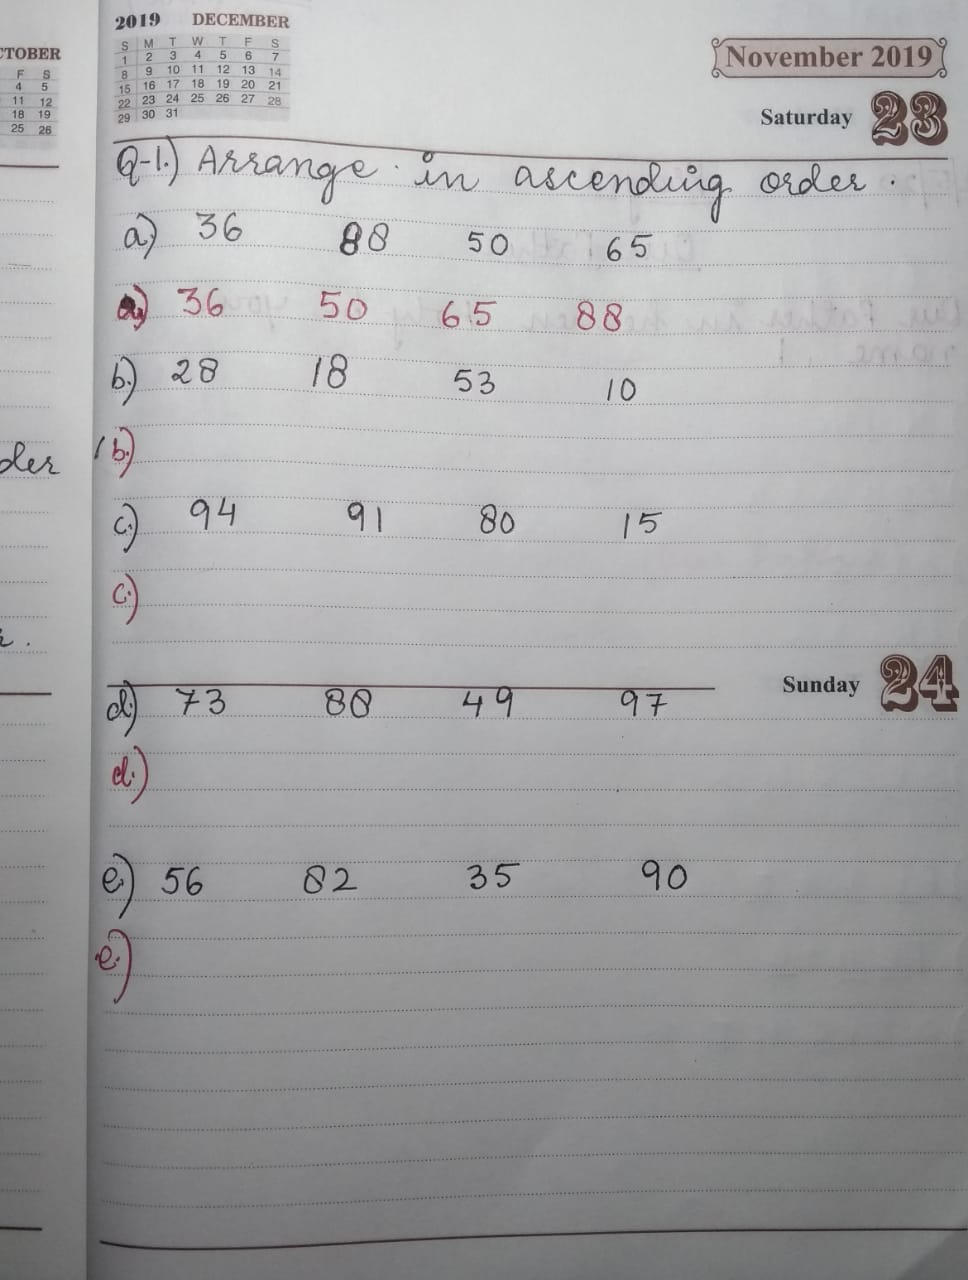 2019 DECEMBER
S M T W T F S
1 2 3 4 5 6 7
8 9 10 11 12 13 14
15 16 17 18 19 20 21
22 23 24 25 26 27 28
29 30 31
CTOBER
F S
4 5
11 12
18 19
25 26
November 2019
Saturday 23
Q-1.) Arrange in ascending order.
a) 36 88 50 65
a) 36 50 65 88
b.) 28 18 53 10
b.)
c.) 94 91 80 15
c.)
Sunday 24
d.) 73 88 49 97
d.)
e.) 56 82 35 90
e.)
der